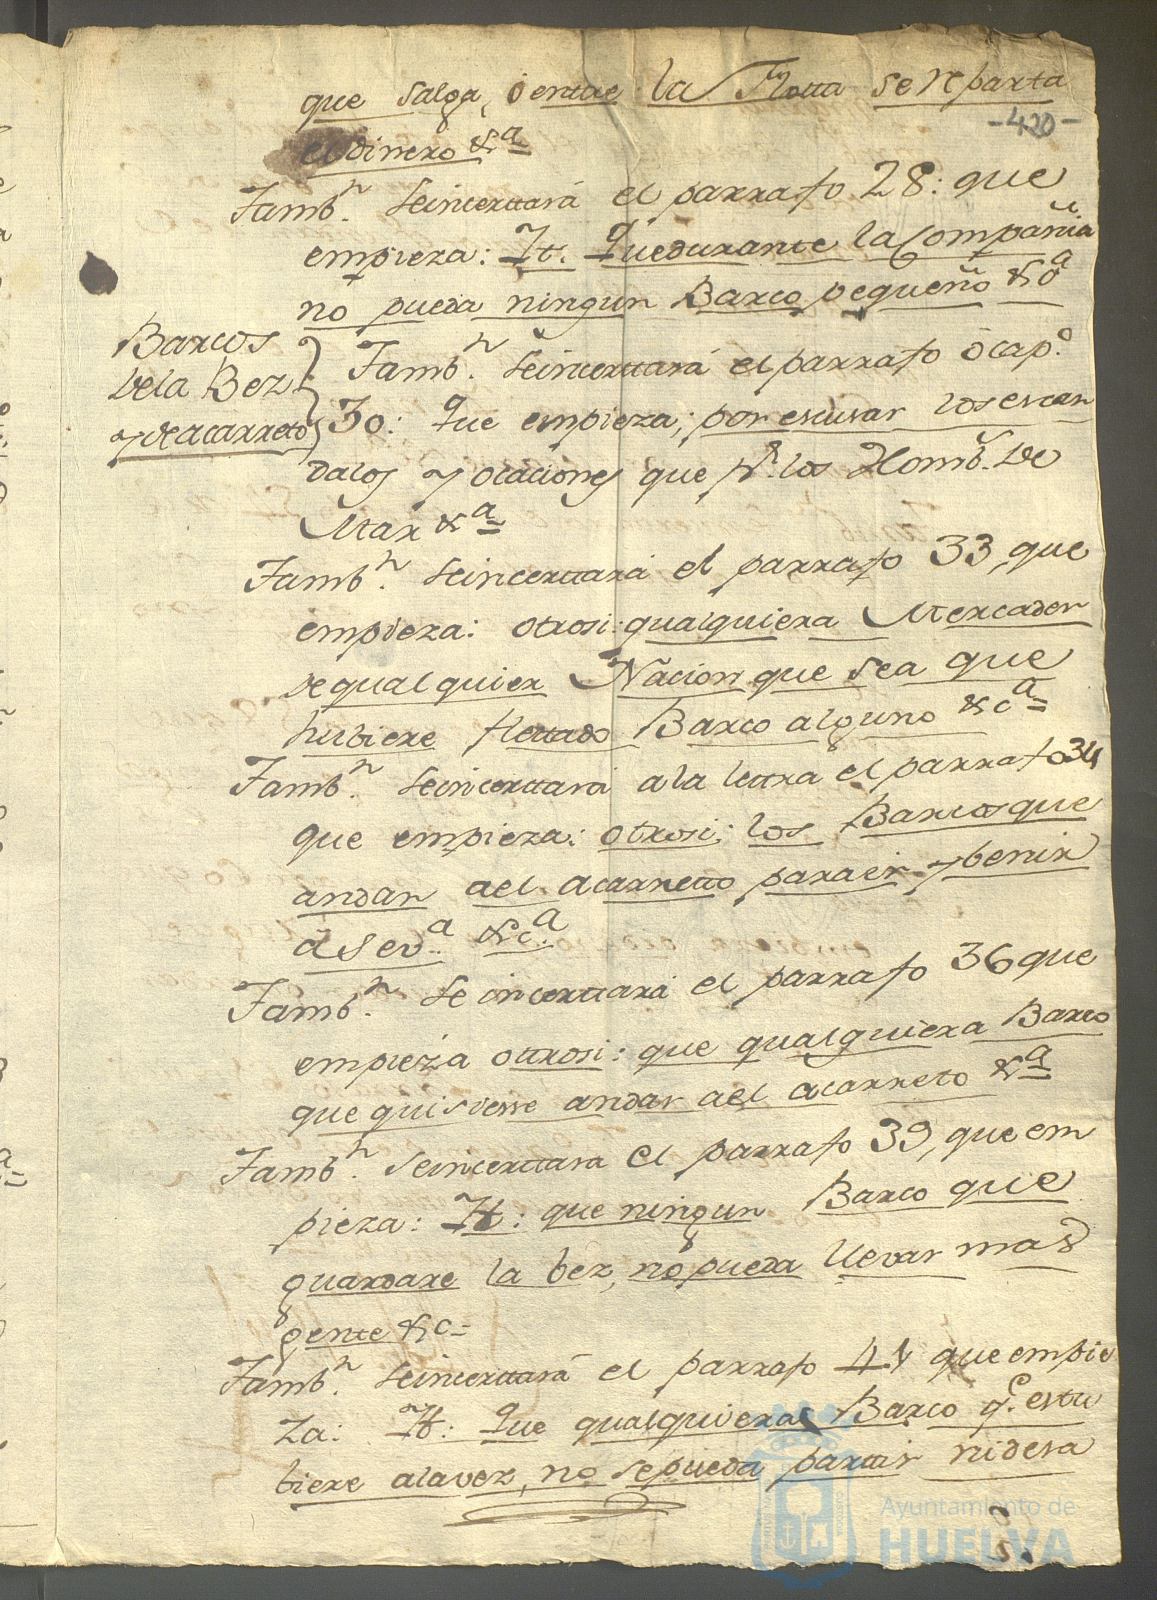 que salga, ó entrre la Flotta se reparta
-420-
el dinero &ª
Tambⁿ. seincerttará el parrafo 28: que
empieza: It. Quedurante la Compañia
no pueda ningun Barco pequeño &ª
Barcos
dela Bez
y de acarreto
Tambⁿ. seincerttará el parrafo ó cap.º
30: Que empieza; por escusar los escan
dalos y ocaciones que pr. los Hombs. de
Mar &ª
Tambⁿ. seincerttará el parrafo 33, que
empieza: otrosi: qualquiera Mercader
de qualquier Nacion que sea que
hubiere flettado Barco alguno &cª
Tambⁿ. seincerttará ala lettra el parrafo 34
que empieza: otrosi: los Barcos que
andan ael acarretto para ir y benir
á Sevª. &cª
Tambⁿ. se incerttará el parrafo 36 que
empieza ottrosi: que qualquiera Barco
que quisiesse andar ael acarreto &ª
Tambⁿ. seincerttara el parrafo 39, que em
pieza: It: que ningun Barco que
guardare la bez, no pueda llevar mas
gente &c
Tambⁿ. seincerttará el parrafo 41 que empie
za: It: Que qualquiera Barco q.e estu
biere ala vez, no se pueda partir ni desa
Ayuntamiento de
HUELVA